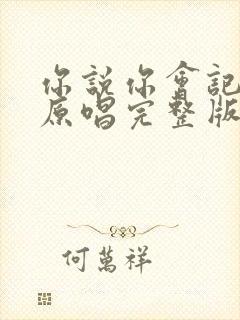 你說你會記
原唱完整版
何萬祥